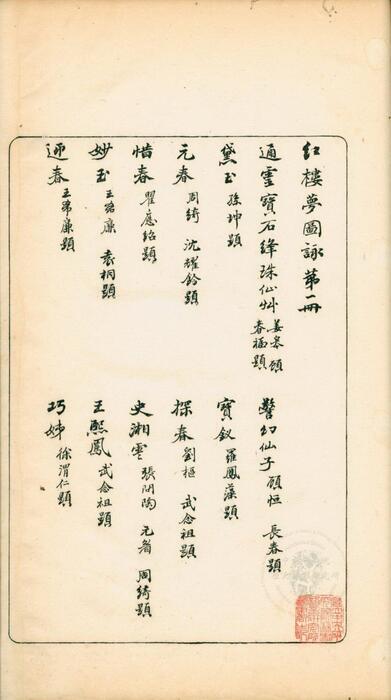 紅樓夢圖詠第一冊
通靈寶石絳珠仙艸 姜皋 顧春福題
警幻仙子 顧恒 長春題
黛玉 孫坤題
寶釵 羅鳳藻題
元春 周綺 沈耀鈴題
探春 劉樞 武念祖題
惜春 瞿應紹題
史湘雲 張問陶 周綺題
妙玉 王希廉 袁桐題
王熙鳳 武念祖題
迎春 王希廉題
巧姊 徐渭仁題